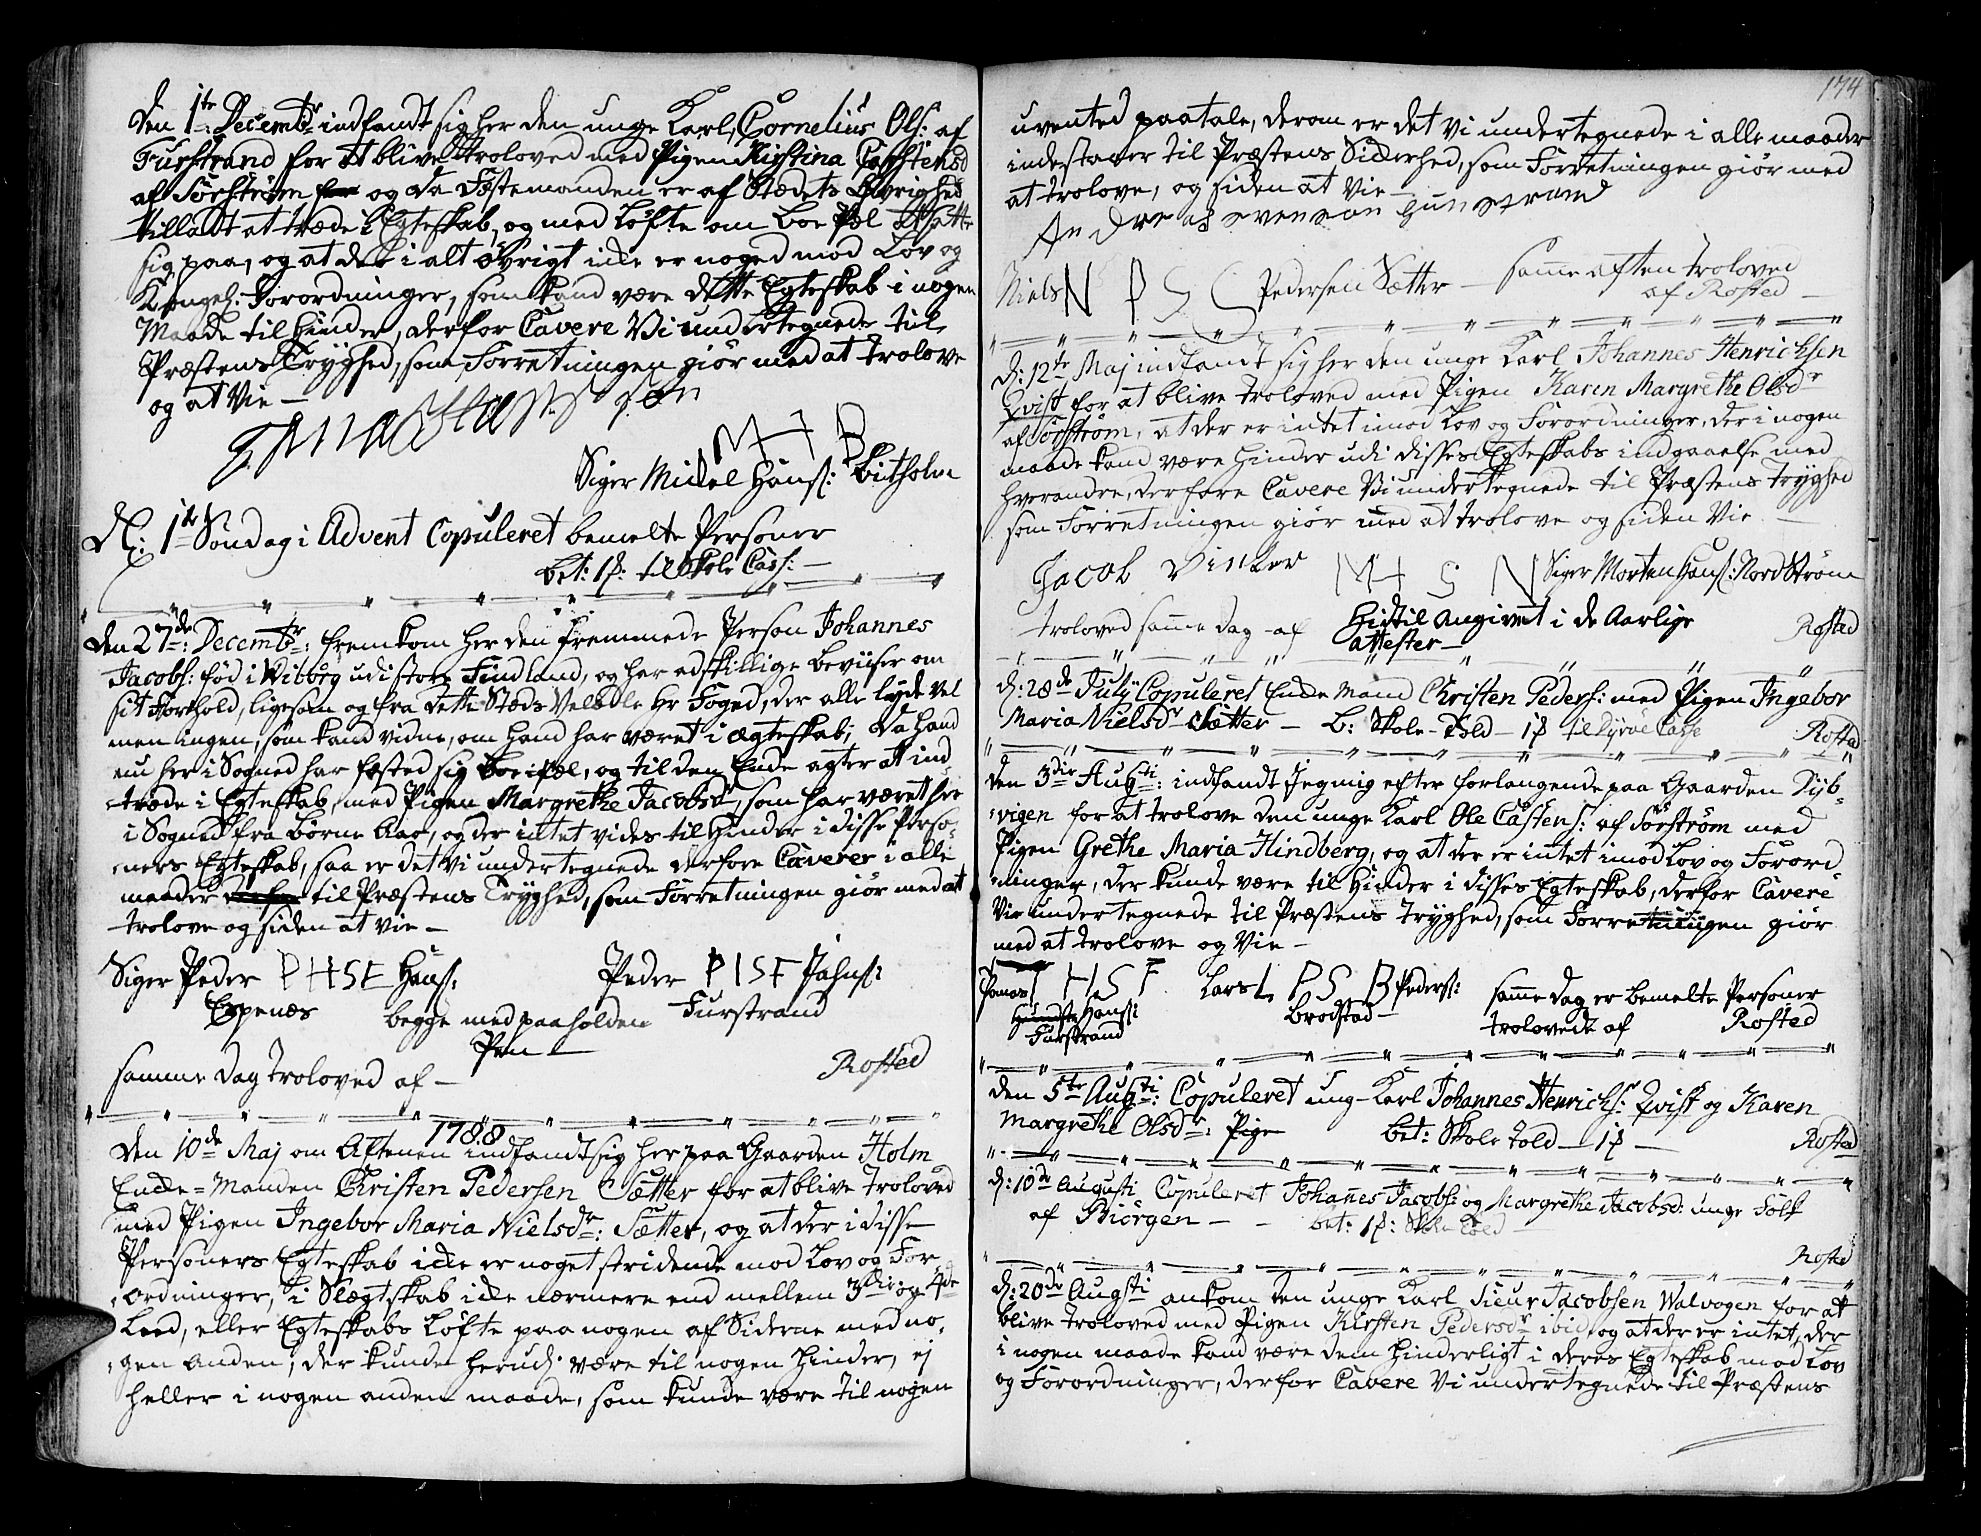 Den 1te Decembr indfandt sig her den unge Karl, Cornelius Ols: af
Furstrand for at blive troloved med Pigen Kirstina Carstensd
af Sörström og da Fæstemanden er af Stædets Övrighed
tilladt at træde i Egteskab, og med Löfte om Boe Pæl at sætte
sig paa, og at det i alt övrigt ikke er noged mod Lov og
Kongel: Forordninger, som kand være dette Egteskab i nogen
Maade til Hinder, derfor Cavere Vi undertegnede til
Præstens Tryghed, som Forretningen giör med at trolove
og at Vie —
M H B
Siger Mickel Hans: Birtholm
D: 1te Söndag i Advent Copuleret bemelte Personer
bet: 1 ß: til Skole Cass: —
Den 27de Decembr: fremkom her den fremmede Person Johannes
Jacobs: föd i Wiborg udi store Findland, og har adskillige beviiser om
sit Forhold, ligesom og fra dette Stæds Velædle Hr Foged, der alle lyde vel
men ingen, som kand vidne, om hand har været i ægteskab; da hand
nu her i Sogned har fæsted sig Boe Pæl, og til den Ende agter at ind-
træde i Egteskab med Pigen Margrethe Jacobsdr, som har været her
i Sogned fra Börne Aar, og der intet vides til Hinder i disse Perso-
ners Egteskab, saa er det vi undertegnede derfore Caverer i alle
maader til Præstens Tryghed, som Forretningen giör med at
trolove og siden at vie —
Siger Peder P H S E Hans:
Espenæs
Peder P I S F Jahns:
Furstrand
begge med paaholden
Pen —
samme Dag troloved af — Rosted
1788
Den 10de Maj om Aftenen indfandt sig her paa Gaarden Holm
Enke-Manden Christen Pedersen Sætter for at blive troloved
med Pigen Ingebor Maria Nielsdr: Sætter, og at der i disse
Personers Egteskab ikke er noget stridende mod Lov og For-
ordninger, i Slægtskab ikke nærmere end mellem 3die og 4de
Leed, eller Egteskabs Löfte paa nogen af Siderne med no-
gen anden, der kunde herudi være til nogen Hinder, ej
heller i nogen anden maade, som kunde være til nogen
174
uvented paatale, derom er det vi undertegnede i alle maader
indestaaer til Præstens Sikkerhed, som Forretningen giör med
at trolove, og siden at vie —
Andreas Svenson Gunstrand
Niels N P S Pedersen Sætter — samme aften troloved
af Rosted —
D: 12te Maj indfandt sig her den unge Karl Johannes Henrichsen
Qvist for at blive troloved med Pigen Karen Margrethe Olsdr
af Sörström, at der er intet imod Lov og Forordninger, der i nogen
maade kand være Hinder udi disses Egteskabs indgaaelse med
hverandre, derfore Cavere Vi undertegnede til Præstens Tryghed
som Forretningen giör med at trolove og siden Vie —
Jacob Vinter M H S N Siger Morten Hans: Nord Ström
troloved samme Dag af Rosted
Hidtil Angivet i de Aarlige
Attester —
D: 28de July Copuleret Enke Mand Christen Peders: med Pigen Ingebor
Maria Nielsdr Sætter — B: Skole-Told — 1 ß til Dyröe Casse Rosted
Den 3die Augti: indfandt jeg mig efter forlangende paa Gaarden Dyb-
vigen for at trolove den unge Karl Ole Castens: af Sörström med
Pigen Grethe Maria Hindberg, og at der er intet imod Lov og Forord-
ninger, der kunde være til Hinder i disses Egteskab, derfor Cavere
Vi undertegnede til Præstens Tryghed, som Forretningen giör
med at trolove og Vie —
Thomas T H S F Hans:
Furstrand
Lars L P S B Peders:
Brodstad —
samme Dag er bemelte Personer
trolovede af Rosted
Den 5te Augti: Copuleret ung-Karl Johannes Henrichs: Qvist og Karen
Margrethe Olsdr: Pige bet: Skole Told — 1 ß — Rosted
D: 10de Augusti Copuleret Johannes Jacobs: og Margrethe Jacobsd: unge Folk
af Biörgen — bet: 1 ß: Skole Told —
Rosted
D: 20de Augsti ankom den unge Karl Sieur Jacobsen Walvogen for at
blive troloved med Pigen Kirsten Pedersdr ibid, og at der er intet, der
i nogen maade kand være dem hinderligt i deres Egteskab mod Lov
og Forordninger, derfor Cavere Vi undertegnede til Præstens